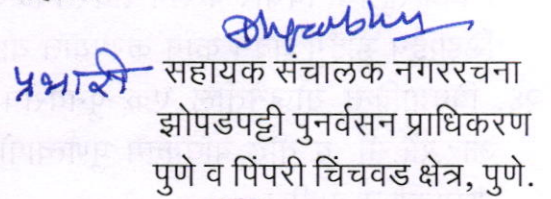 प्रभारी सहायक संचालक नगररचना
झोपडपट्टी पुनर्वसन प्राधिकरण
पुणे व पिंपरी चिंचवड क्षेत्र, पुणे.